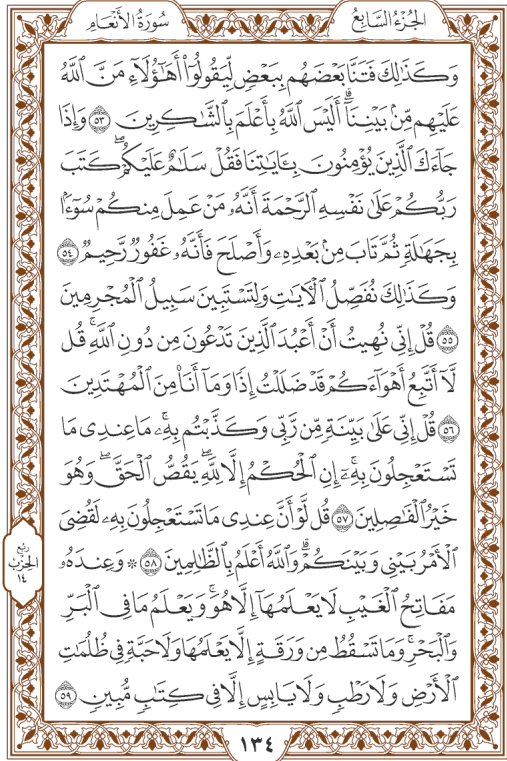 الجُزْءُ السَّابِعُ
سُورَةُ الأَنْعَامِ
وَكَذَٰلِكَ فَتَنَّا بَعْضَهُم بِبَعْضٍ لِّيَقُولُوٓا۟ أَهَـٰٓؤُلَآءِ مَنَّ ٱللَّهُ
عَلَيْهِم مِّنۢ بَيْنِنَآ ۗ أَلَيْسَ ٱللَّهُ بِأَعْلَمَ بِٱلشَّـٰكِرِينَ ٥٣ وَإِذَا
جَآءَكَ ٱلَّذِينَ يُؤْمِنُونَ بِـَٔايَـٰتِنَا فَقُلْ سَلَـٰمٌ عَلَيْكُمْ ۖ كَتَبَ
رَبُّكُمْ عَلَىٰ نَفْسِهِ ٱلرَّحْمَةَ أَنَّهُۥ مَنْ عَمِلَ مِنكُمْ سُوٓءًۢا
بِجَهَـٰلَةٍ ثُمَّ تَابَ مِنۢ بَعْدِهِۦ وَأَصْلَحَ فَأَنَّهُۥ غَفُورٌ رَّحِيمٌ ٥٤
وَكَذَٰلِكَ نُفَصِّلُ ٱلْـَٔايَـٰتِ وَلِتَسْتَبِينَ سَبِيلُ ٱلْمُجْرِمِينَ
٥٥ قُلْ إِنِّى نُهِيتُ أَنْ أَعْبُدَ ٱلَّذِينَ تَدْعُونَ مِن دُونِ ٱللَّهِ ۚ قُل
لَّآ أَتَّبِعُ أَهْوَآءَكُمْ ۙ قَدْ ضَلَلْتُ إِذًا وَمَآ أَنَا۠ مِنَ ٱلْمُهْتَدِينَ
٥٦ قُلْ إِنِّى عَلَىٰ بَيِّنَةٍ مِّن رَّبِّى وَكَذَّبْتُم بِهِۦ ۚ مَا عِندِى مَا
تَسْتَعْجِلُونَ بِهِۦٓ ۚ إِنِ ٱلْحُكْمُ إِلَّا لِلَّهِ ۖ يَقُصُّ ٱلْحَقَّ ۖ وَهُوَ
خَيْرُ ٱلْفَـٰصِلِينَ ٥٧ قُل لَّوْ أَنَّ عِندِى مَا تَسْتَعْجِلُونَ بِهِۦ لَقُضِىَ
ٱلْأَمْرُ بَيْنِى وَبَيْنَكُمْ ۗ وَٱللَّهُ أَعْلَمُ بِٱلظَّـٰلِمِينَ ٥٨ ۞ وَعِندَهُۥ
مَفَاتِحُ ٱلْغَيْبِ لَا يَعْلَمُهَآ إِلَّا هُوَ ۚ وَيَعْلَمُ مَا فِى ٱلْبَرِّ
وَٱلْبَحْرِ ۚ وَمَا تَسْقُطُ مِن وَرَقَةٍ إِلَّا يَعْلَمُهَا وَلَا حَبَّةٍ فِى ظُلُمَـٰتِ
ٱلْأَرْضِ وَلَا رَطْبٍ وَلَا يَابِسٍ إِلَّا فِى كِتَـٰبٍ مُّبِينٍ ٥٩
رُبْعُ
الحِزْبِ
١٤
١٣٤